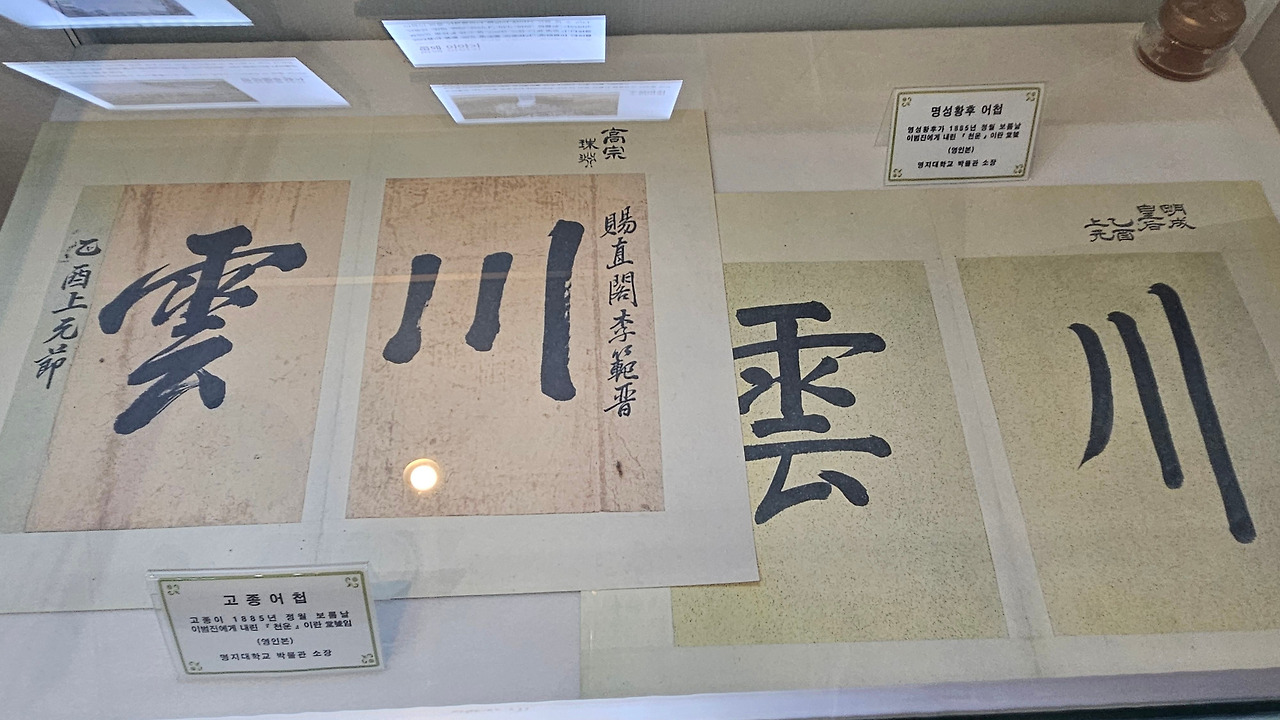 高宗
珠淵
賜直閣李範晋
川
雲
乙酉上元節
고종어첩
고종이 1885년 정월 보름날
이범진에게 내린 『천운』이란 堂號임
(영인본)
명지대학교 박물관 소장
명성황후 어첩
명성황후가 1885년 정월 보름날
이범진에게 내린 『천운』이란 堂號
(영인본)
명지대학교 박물관 소장
明成
皇后
乙酉
上元
川
雲